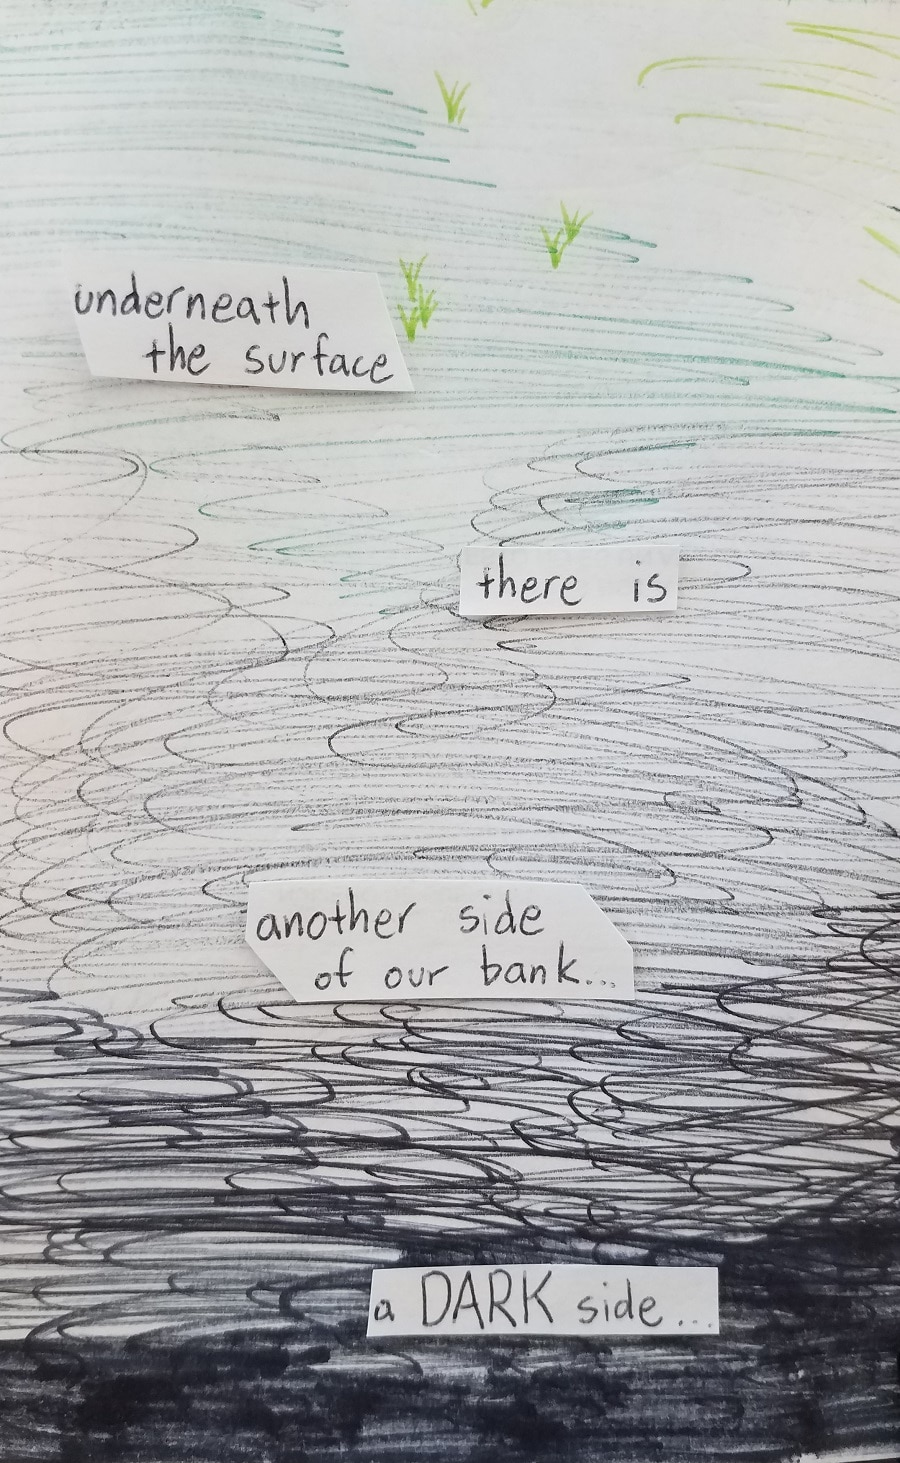 underneath
the surface
there is
another side
of our bank...
a DARK side...